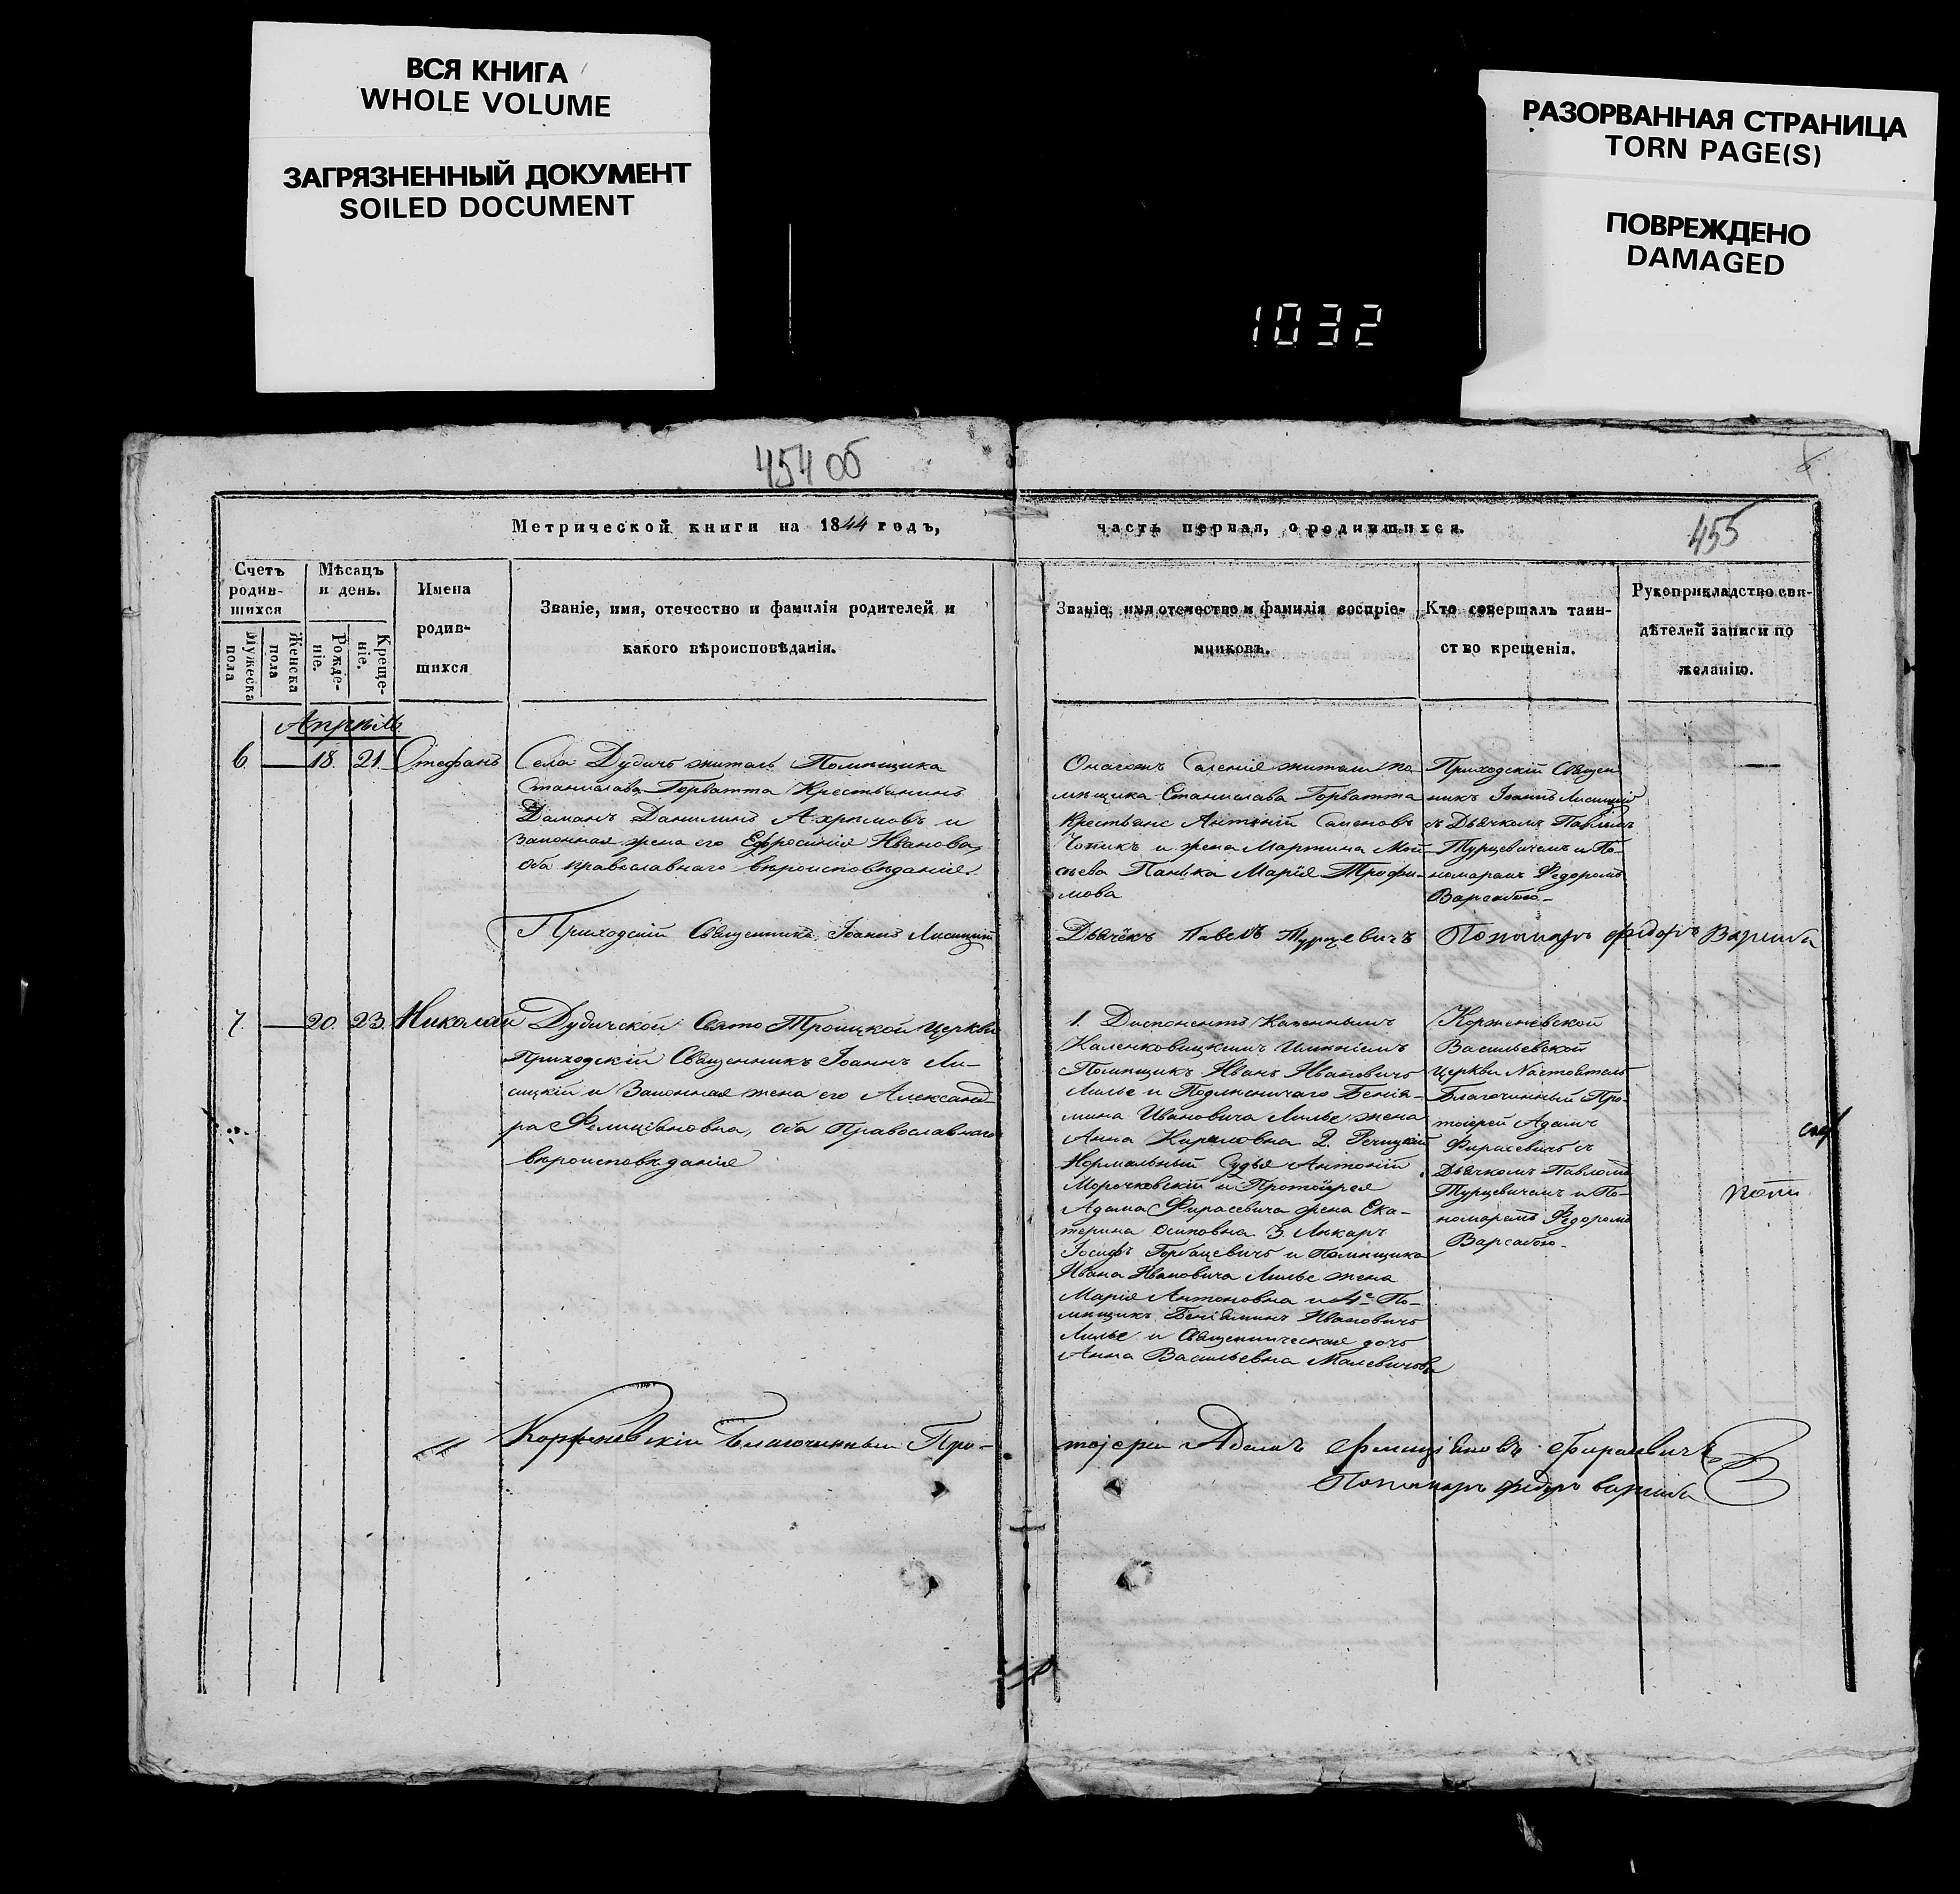 ВСЯ КНИГА
WHOLE VOLUME
ЗАГРЯЗНЕННЫЙ ДОКУМЕНТ
SOILED DOCUMENT
РАЗОРВАННАЯ СТРАНИЦА
TORN PAGE(S)
ПОВРЕЖДЕНО
DAMAGED
1032
454 об
Метрической книги на 1844 годъ,
часть первая, о родившихся.
455
Счетъ родив-шихся
Мужеска пола
Женска пола
Мѣсяцъ и день.
Рожде-ніе.
Креще-ніе.
Имена родив-шихся
Званіе, имя, отечество и фамилія родителей и
какого вѣроисповѣданія.
Званіе, имя отечество и фамилія воспріе-
мниковъ.
Кто совершалъ таин-
ство крещенія.
Рукоприкладство сви-
дѣтелей записи по
желанію.
Апрѣль
6 — 18. 21. Стефанъ
Села Дудичъ житель Помѣщика
Станислава Горватта Крестьянинъ
Даманъ Данилинъ Ахримовъ и
законная жена его Ефросинія Иванова,
оба православнаго вѣроисповѣданія.
Онагожъ Селенія жители по-
мѣщика Станислава Горватта
Крестьяне Антоній Семеновъ
и жена Мартина
Марія Трофи-
мова
Приходскій Священ
никъ Іоаннъ Лисицкій
съ Дьячкомъ Павломъ
Турцевичемъ и По-
номаремъ Федоромъ
Варсабою.
Приходскій Священникъ Іоаннъ Лисицкій
Дьячёкъ Павелъ Турцевичъ
Пономарь Федоръ Варсаба
7. — 20. 23. Николай
Дудичской Свято Троицкой Церкви
Приходскій Священникъ Іоаннъ Ли-
сицкій и Законная жена его Александ-
ра Фелиціановна, оба Православнаго
вѣроисповѣданія
1. Диспонентъ Казеннымъ
Каленковицкимъ Имѣніемъ
Помѣщикъ Иванъ Ивановичъ
Лилье и Подлѣсничаго Бенія-
мина Ивановича Лилье жена
Анна Кириловна 2. Речицкій
Нормальный Судья Антоній
Морочковскій и Протоіерея
Адама Фирасевича жена Ека-
терина Осиповна 3. Лѣкарь
Іосифъ Горбацевичъ и Помѣщика
Ивана Ивановича Лилье жена
Марія Антоновна и 4е По-
мѣщикъ Беніяминъ Ивановичъ
Лилье и Священническая дочь
Анна Васильевна Малевичова
Корженевской
Васильевской
Церкви Настоятель
Благочинный Про-
тоіерей Адамъ
Фирасевичъ съ
Дьячкомъ Павломъ
Турцевичемъ и По-
номаремъ Федоромъ
Варсабою.
Корженевскій Благочинный Про-
тоіерей Адамъ Фелиціановъ Фирасевичъ
Пономарь Федоръ Варсаба